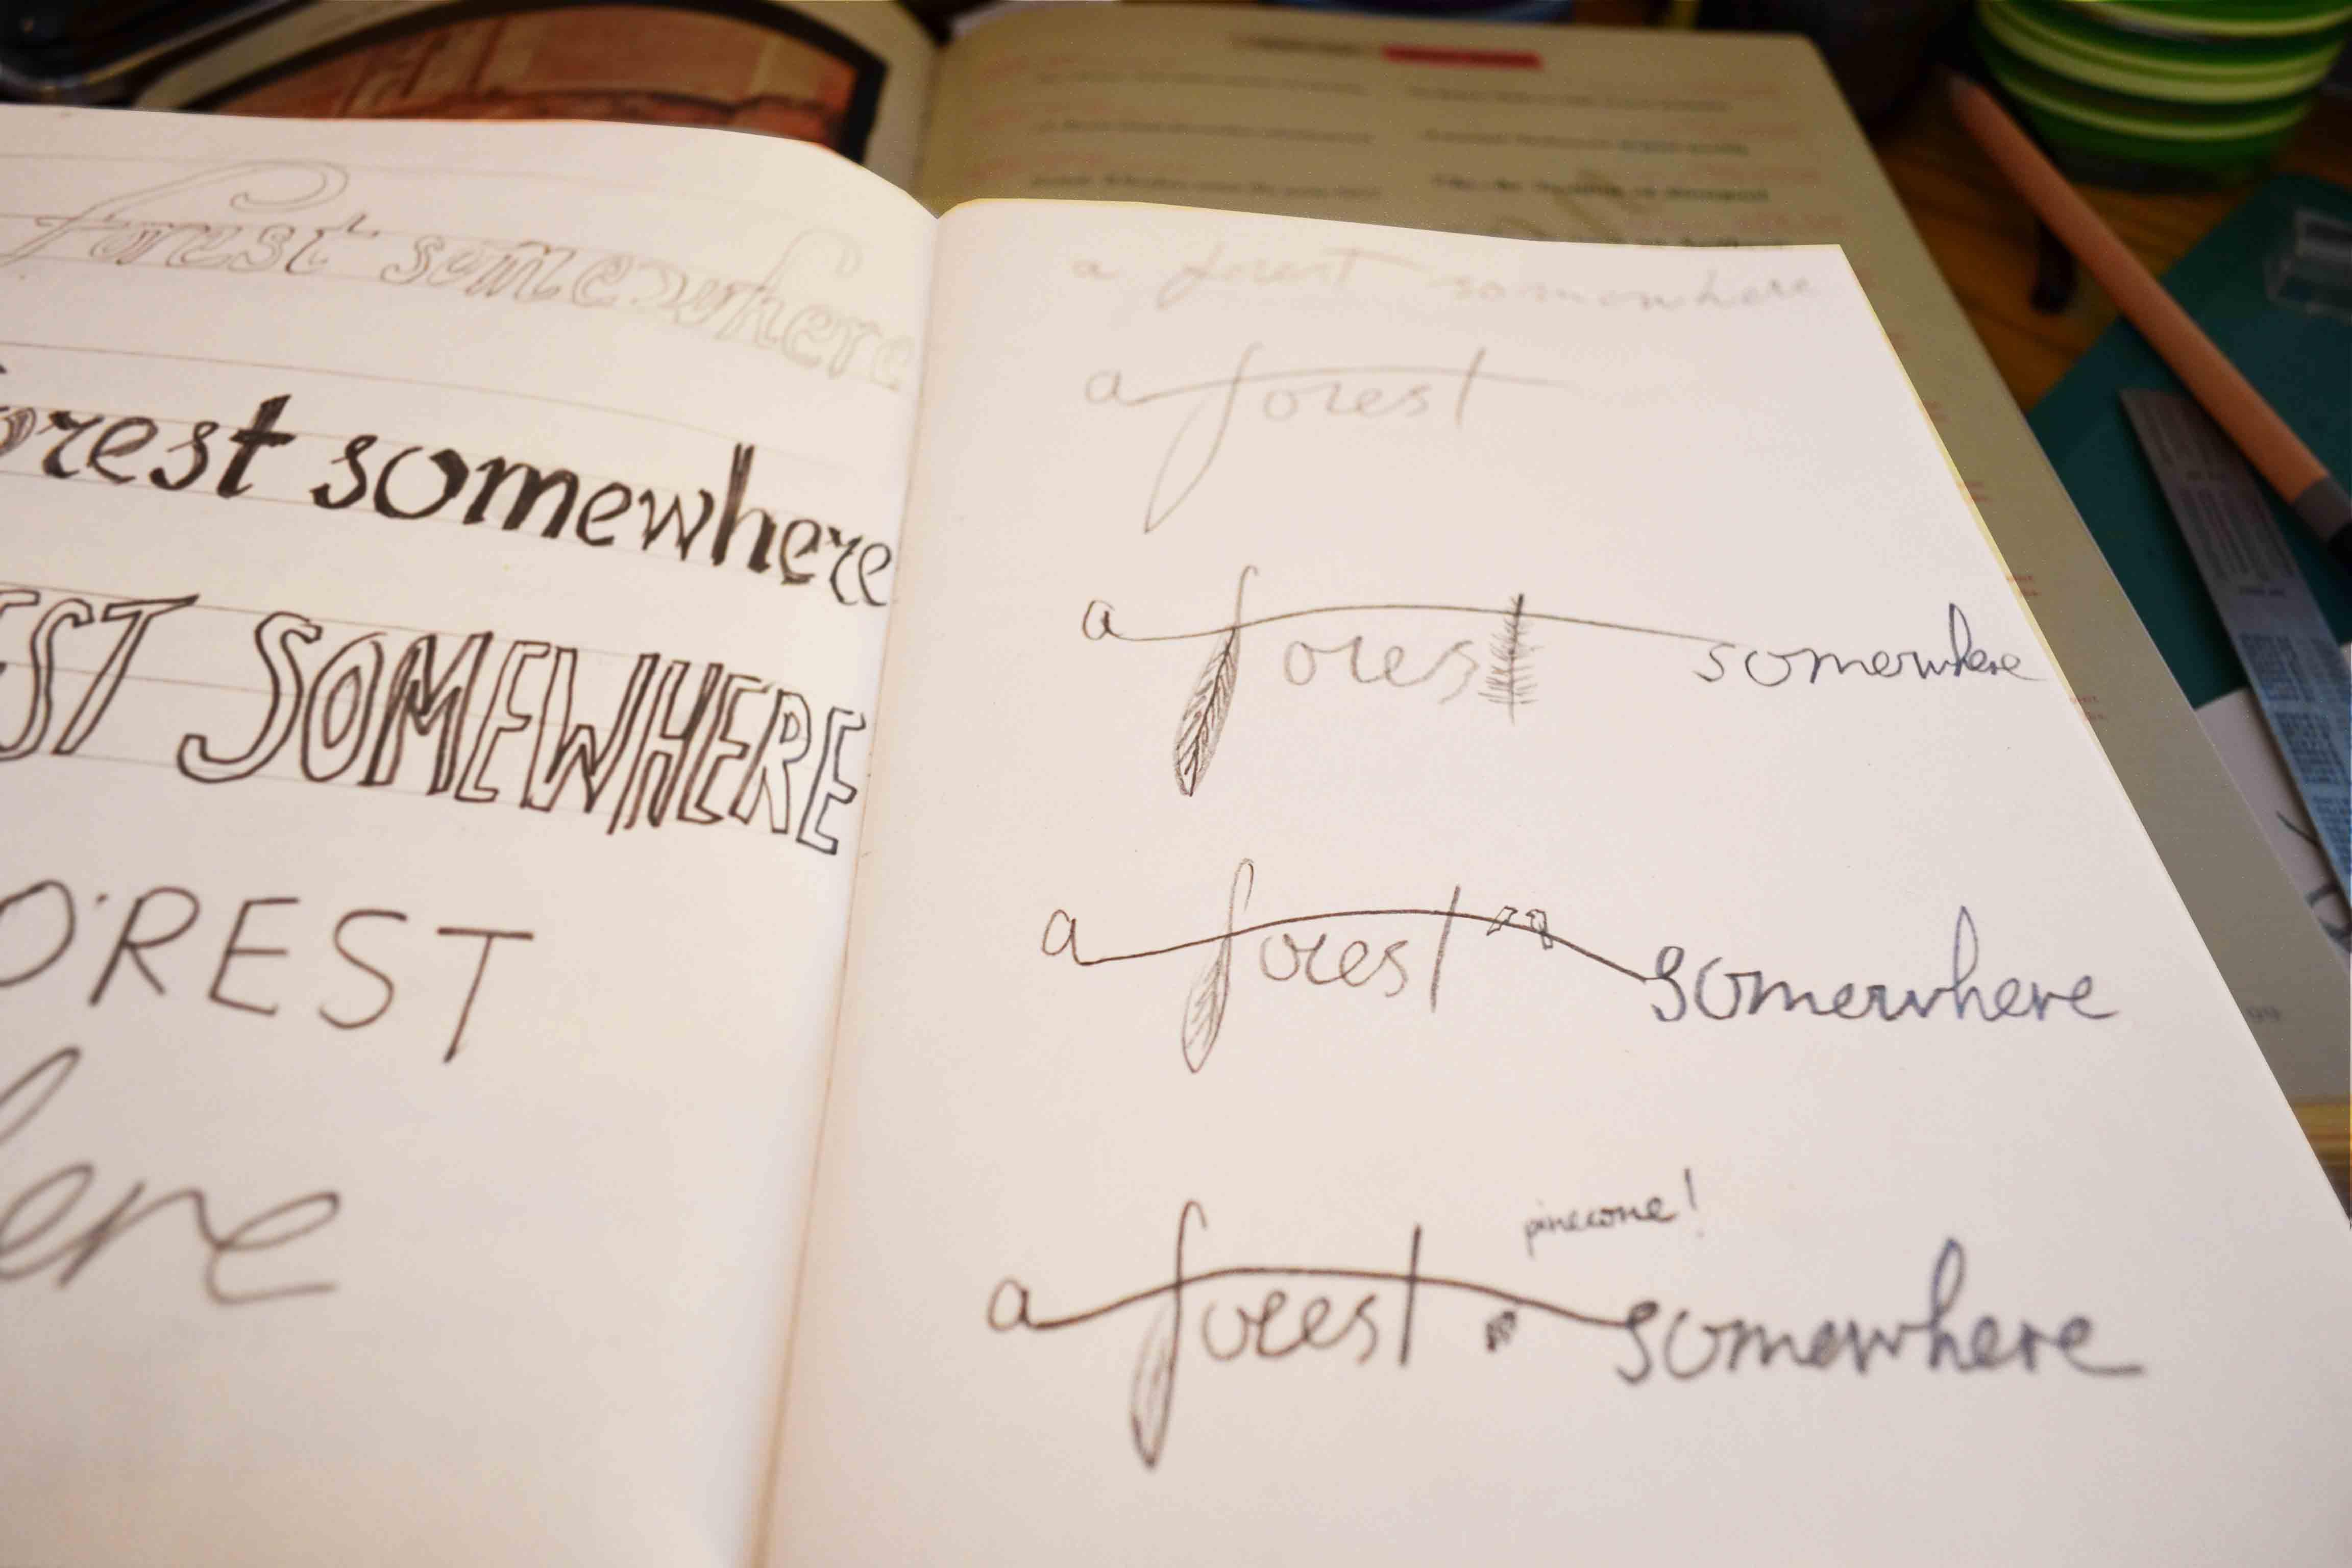 forest somewhere
orest somewhere
EST SOMEWHERE
OREST
ere
a forest somewhere
a forest
a forest somewhere
a forest somewhere
pinecone!
a forest somewhere